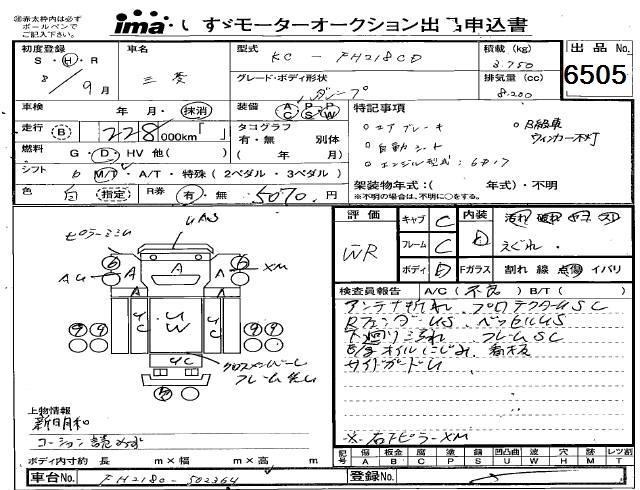 ※赤太枠内は必ず
ボールペンで
ご記入下さい。
ima いすゞモーターオークション出品申込書
初度登録 車名 型式 KC - FH218CD 積載 (kg) 3.750 出品No. 6505
S・H・R 8/9月 三菱 グレード・ボディ形状 ダンプ 排気量 (cc) 8.200
車検 年 月・抹消 装備 AC PS PW 特記事項
走行 B 228,000km「 」 タコグラフ 有・無 別体 ( 年 月)
○エアブレーキ ○B級車
○自動シート ウィンカー不灯
○エンジン型式:6D17
燃料 G・D・HV 他( )
シフト 6 M/T・A/T・特殊(2ペダル・3ペダル)
色 白(指定) R券 有・無 5070円
架装物年式:( 年式)・不明
※不明の場合は、不明に○をする。
評価 WR キャブ C 内装 D 汚れ 破れ
フレーム C えぐれ.
ボディ D Fガラス 割れ 線 点傷 イバリ
検査員報告 A/C(不良)B/T( )
アンテナ折れ. プロテクターUSC
RフェンダーUS. ベッセルUS
下廻りさびれ フレームSC
E/gオイルにじみ. 看板
サイドガードU
※.右下ピラーXM
ピラーミミU
UAS
AU
XM
A
UC
UW
クロスメンバーU
フレーム先U
上物情報
新明和
コーション読めず
ボディ内寸約 長 m×幅 m×高 m
記号 A傷 B板金 C腐 P塗 S錆 U凹凸曲 W歪 Y割 H穴 M跡 Tレツ割
車台No. FH218D-502364 登録No.